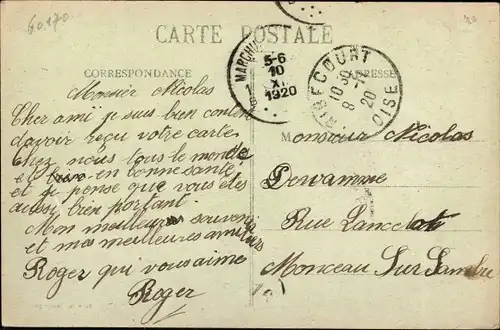 60170
CARTE POSTALE
CORRESPONDANCE
ADRESSE
MARCHI
5-6
10
XI
1920
RIBECOURT
OISE
10 30
8 20
Monsier Nicolas
Cher ami je suis bien content
davoir reçu votre carte
Chez nous tous le monde
et en bonne santé
et je pense que vous êtes
aussi bien portant.
Mon meilleur souvenir
et mes meilleures amitiés
Roger qui vous aime
Roger
M
onsieur Nicolas
Dewamme
Rue Lancelot
Monceau Sur Sambre